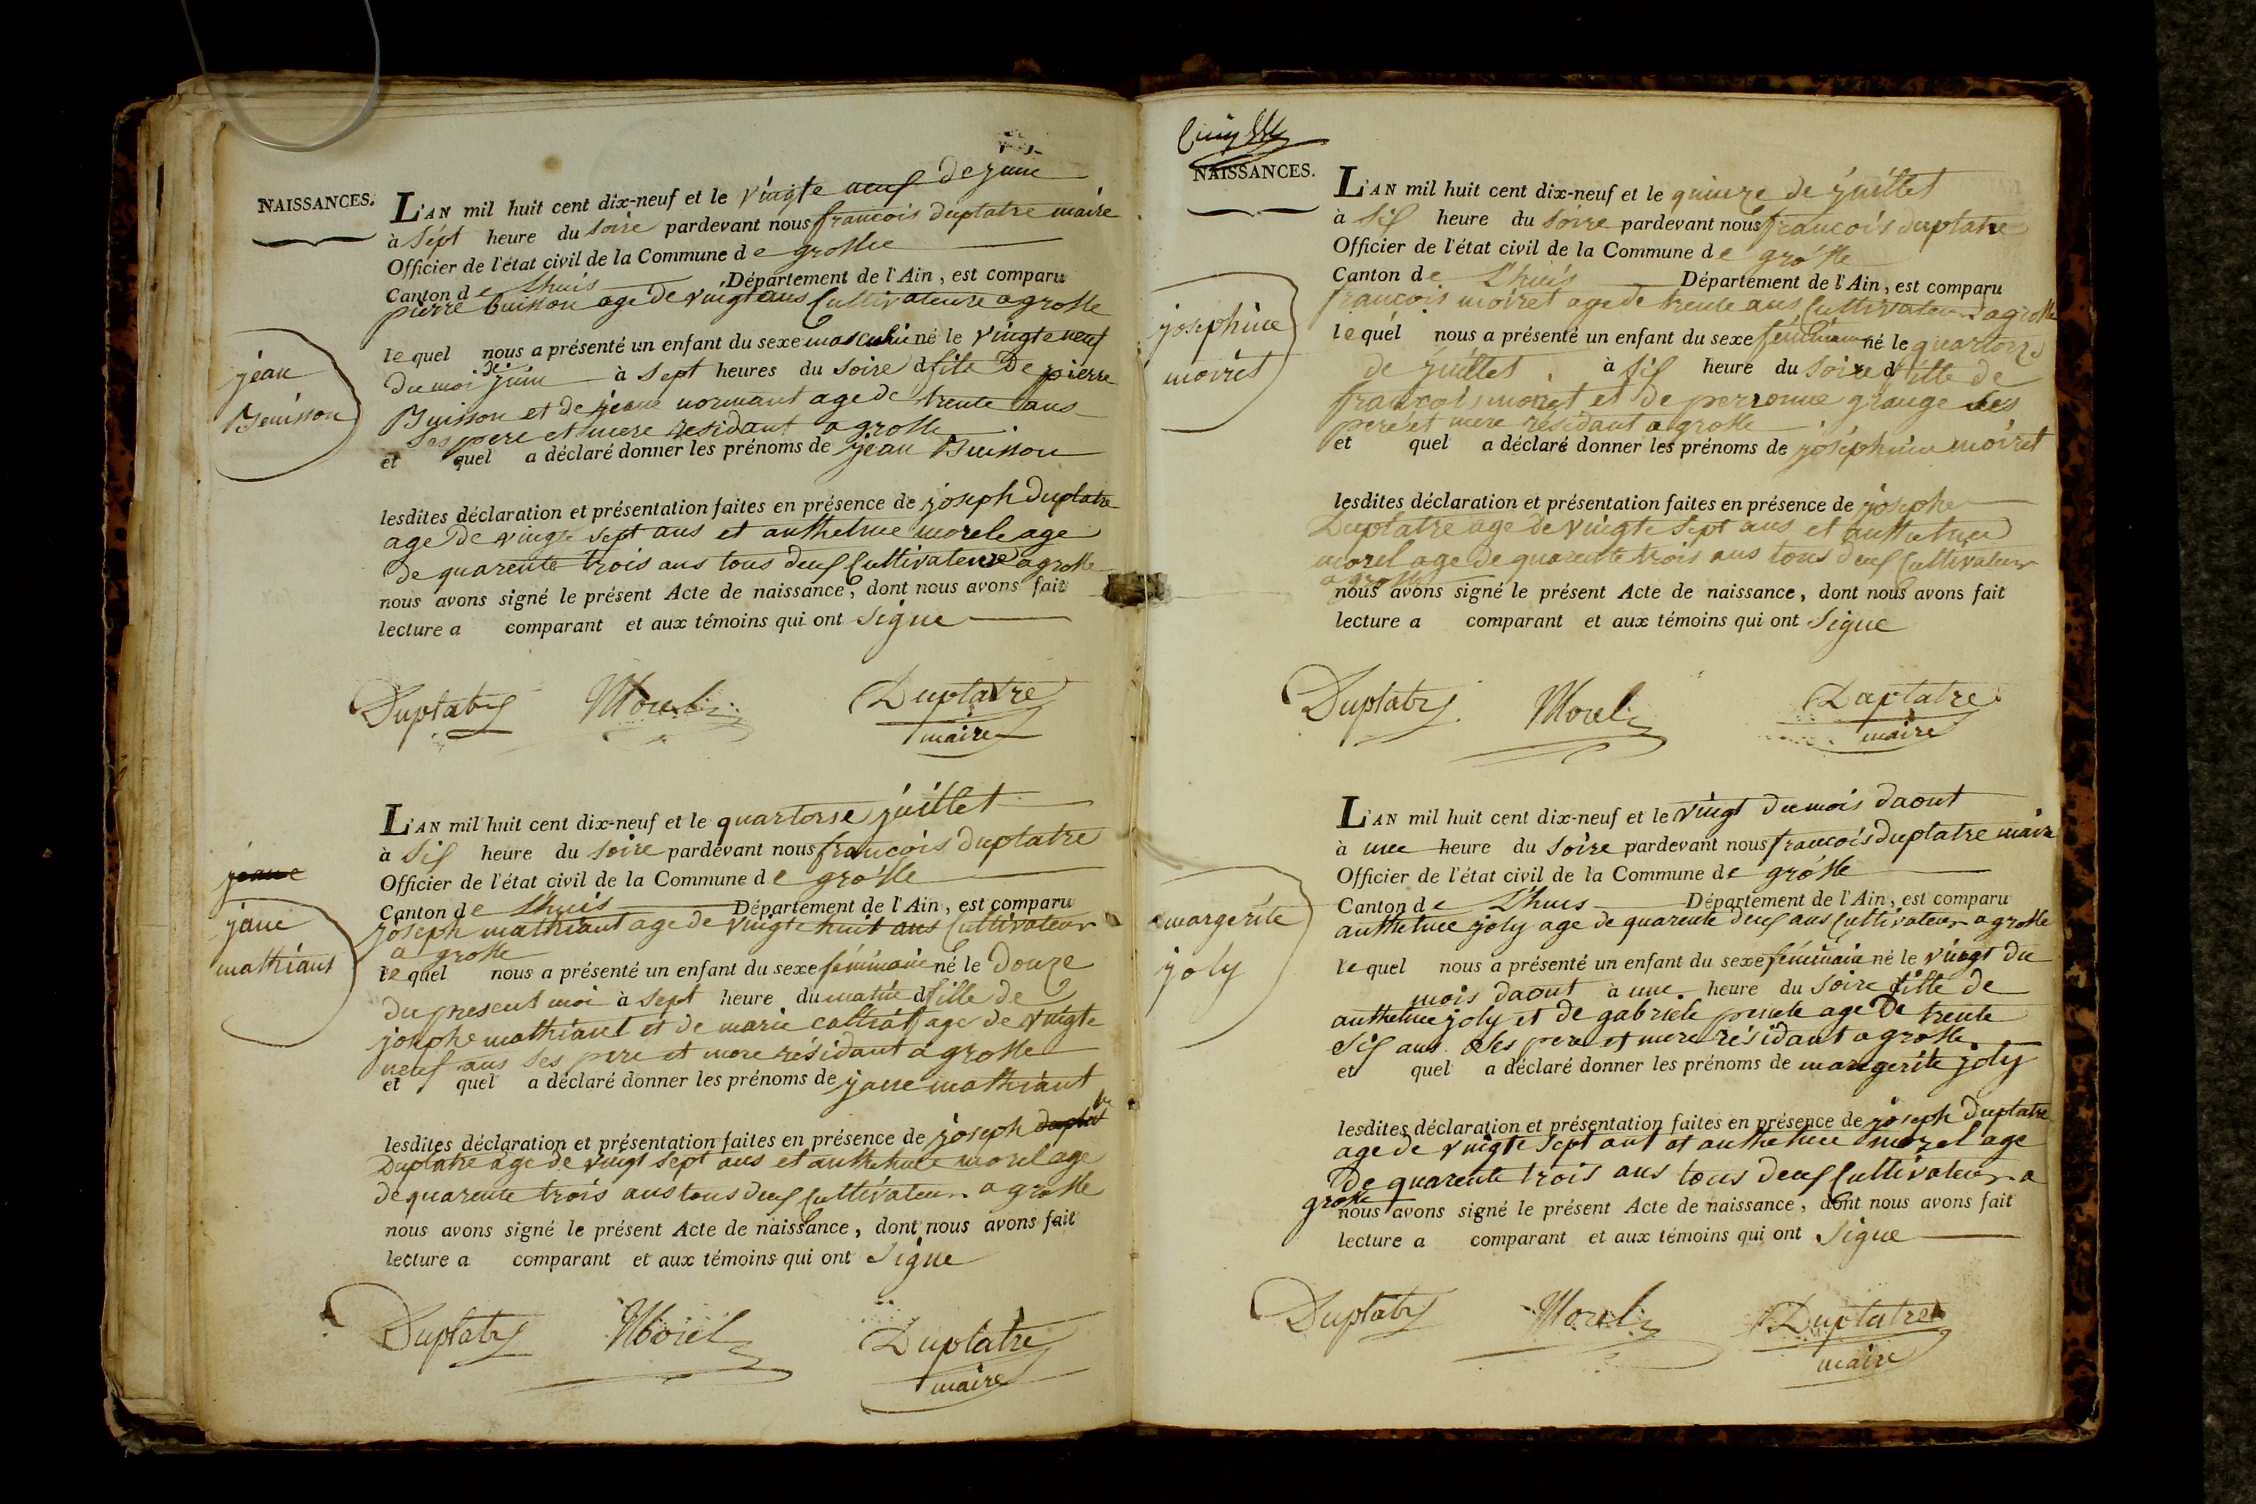 NAISSANCES.
L'AN mil huit cent dix-neuf et le vingte neuf de juin
à sept heure du soire pardevant nous francois duplatre maire
Officier de l'état civil de la Commune de groslee
Canton de Lhuis Département de l'Ain, est comparu
pierre buisson age de vingt ans Cultivateure a grosle
jean
Buisson
le quel nous a présenté un enfant du sexe masculin né le vingte neuf
du moi de juin à sept heures du soire d fils De pierre
Buisson et de jeane normant age de trente ans
ses pere et mere residant a grosle
et quel a déclaré donner les prénoms de jean Buisson
lesdites déclaration et présentation faites en présence de joseph duplatre
age de vingte sept ans et anthelme morele age
de quarente trois ans tous deuf Cultivateure a grosle
nous avons signé le présent Acte de naissance, dont nous avons fait
lecture a comparant et aux témoins qui ont signe
Duplatre Morel Duplatre
maire
L'AN mil huit cent dix-neuf et le quartorse juillet
à sif heure du soire pardevant nous francois duplatre
Officier de l'état civil de la Commune de grosle
Canton de Lhuis Département de l'Ain, est comparu
joseph mathiant age de vingte huit ans Cultivateur
a grosle
jeane
jane
mathiant
le quel nous a présenté un enfant du sexe féminaine né le Douze
du present moi à sept heure du matin d fille de
josephe mathiant et de marie age de vingte
neuf ans ses pere et mere résidant a grosle
et quel a déclaré donner les prénoms de jane mathiant
lesdites déclaration et présentation faites en présence de joseph duplat
Duplatre age de vingt sept ans et anthelme morel age
de quarente trois ans tous deuf Cultivateur a grosle
nous avons signé le présent Acte de naissance, dont nous avons fait
lecture a comparant et aux témoins qui ont signe
Duplatre Morel Duplatre
maire
NAISSANCES.
L'AN mil huit cent dix-neuf et le quinze de juillet
à sif heure du soire pardevant nous francois duplatre
Officier de l'état civil de la Commune de grosle
Canton de Lhuis Département de l'Ain, est comparu
francois moiret age de trente ans Cultivateur a grosle
josephine
moiret
le quel nous a présenté un enfant du sexe féminaine né le quartorze
de juillet à sif heure du soire d fille de
francois moiret et de perronne grange ses
pere et mere résidant a grosle
et quel a déclaré donner les prénoms de joséphine moiret
lesdites déclaration et présentation faites en présence de josephe
Duplatre age de vingte sept ans et anthelme
morel age de quarente trois ans tous deuf Cultivateur
a grosle
nous avons signé le présent Acte de naissance, dont nous avons fait
lecture a comparant et aux témoins qui ont signe
Duplatre Morel Duplatre
maire
L'AN mil huit cent dix-neuf et le vingt du mois daout
à une heure du soire pardevant nous francois duplatre maire
Officier de l'état civil de la Commune de grosle
Canton de Lhuis Département de l'Ain, est comparu
anthelme joly age de quarente deuf ans Cultivateur a grosle
margerite
joly
le quel nous a présenté un enfant du sexe féminain né le vingt du
mois daout à une heure du soire fille de
anthelme joly et de gabriele age De trente
sif ans ses pere et mere résidant a grosle
et quel a déclaré donner les prénoms de margerite joly
lesdites déclaration et présentation faites en présence de joseph duplatre
age de vingte sept ant et anthelme morel age
de quarente trois ans tous deuf Cultivateur a
grosle
nous avons signé le présent Acte de naissance, dont nous avons fait
lecture a comparant et aux témoins qui ont signe
Duplatre Morel Duplatre
maire